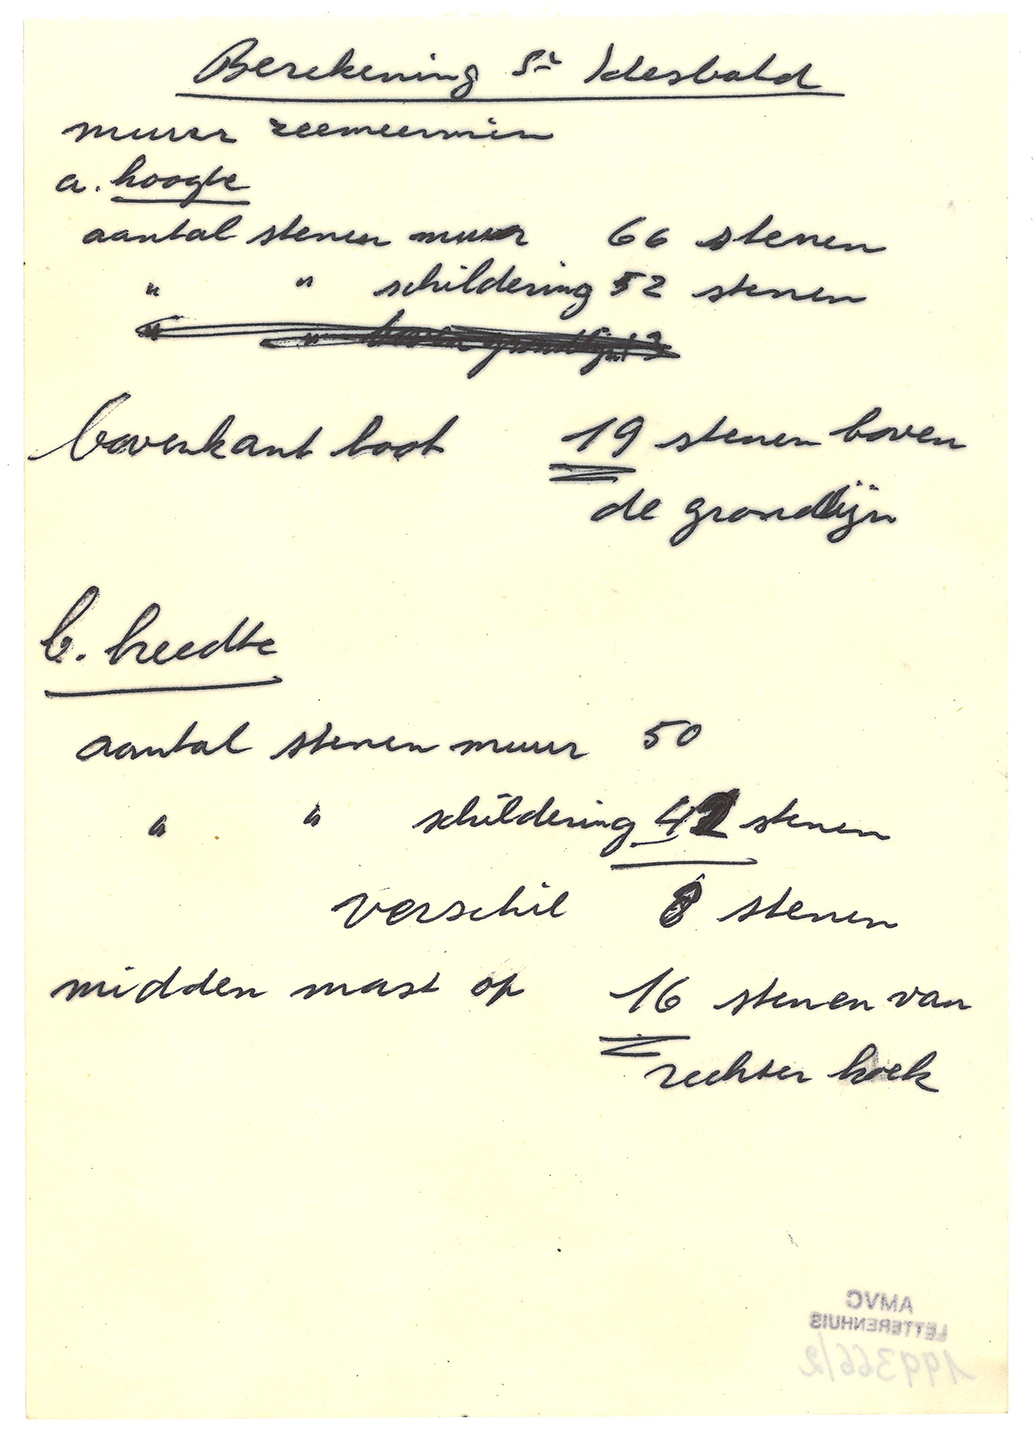 Berekening St Idesbald
muur zeemeermin
a. hoogte
aantal stenen muur 66 stenen
" " schildering 52 stenen
bovenkant boot 19 stenen boven
de grondlijn
b. breedte
aantal stenen muur 50
" " schildering 42 stenen
verschil 8 stenen
midden mast op 16 stenen van
rechter hoek
AMVC
LETTERENHUIS
199366/2